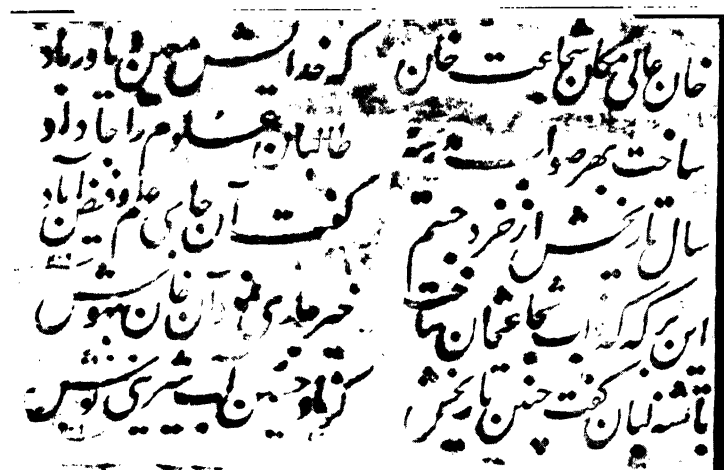 خان عالی مکان شجاعت خان که خدایش معین و یاور باد
ساخت بهر صواب طالبان علوم را جا داد
سال تاریخش از خرد جستم گفت آن جای علم و فیض آباد
این برکه که نواب شجاعتخان ساخت خیر جاری نمود آن خان بهوش
با تشنه لبان گفت چنین تاریخش کز یاد حسین آب شیرین کن نوش